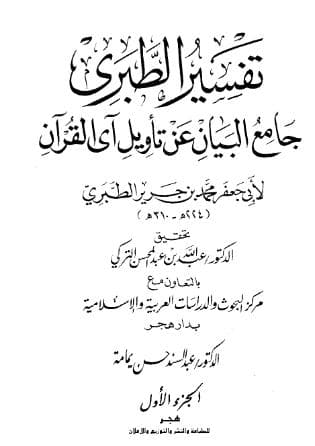 تفسير الطبري
جامع البيان عن تأويل آي القرآن
لأبي جعفر محمد بن جرير الطبري
(٢٢٤هـ - ٣١٠هـ)
تحقيق
الدكتور/عبد الله بن عبد المحسن التركي
بالتعاون مع
مركز البحوث والدراسات العربية والإسلامية
بدار هجر
الدكتور/عبد السند حسن يمامة
الجزء الأول
هجر
للطباعة والنشر والتوزيع والإعلان